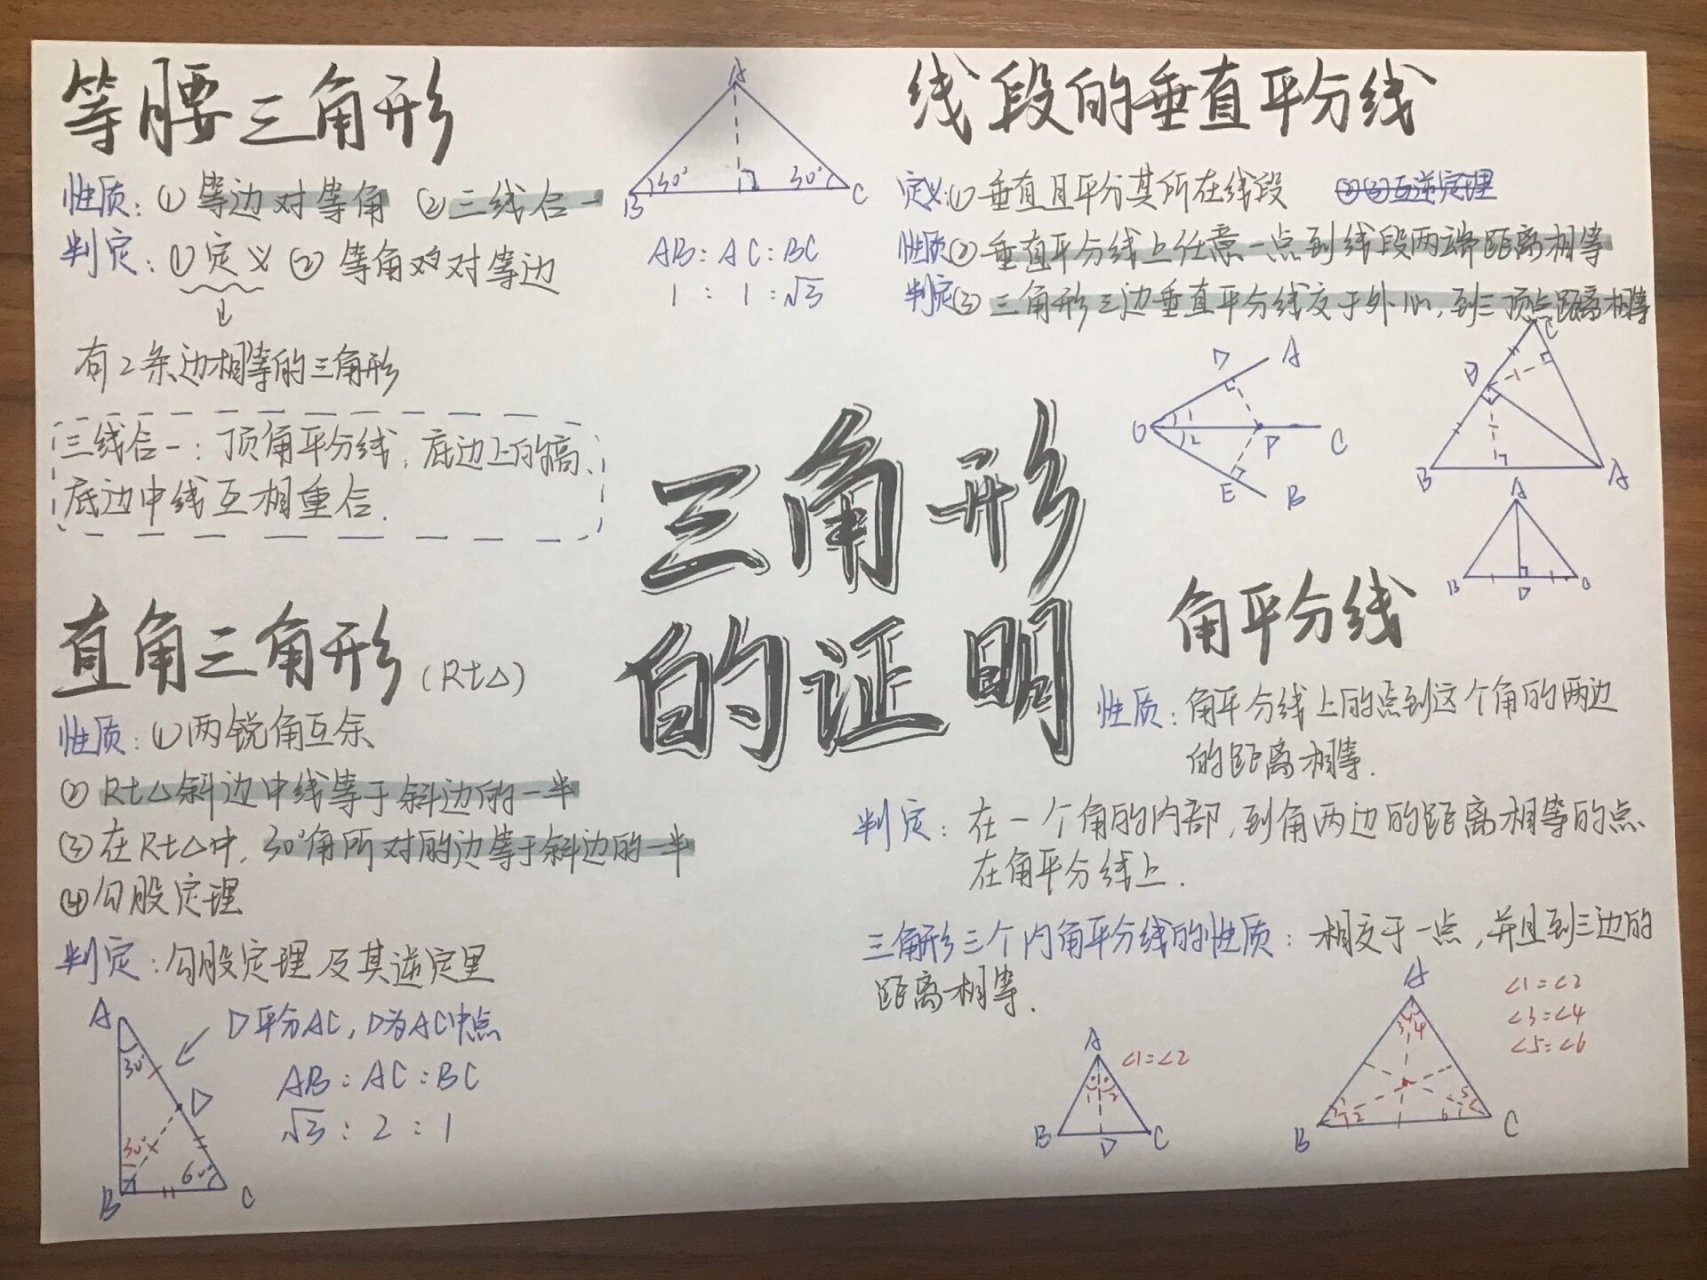 等腰三角形
性质：①等边对等角 ②三线合一
判定：①定义 ②等角对等边
有2条边相等的三角形
三线合一：顶角平分线、底边上的高、
底边中线互相重合.
A
30° 30°
B C
AB：AC：BC
1：1：√3
线段的垂直平分线
定义①垂直且平分其所在线段 ②③互逆定理
性质②垂直平分线上任意一点到线段两端距离相等
判定③三角形三边垂直平分线交于外心，到三顶点距离相等
D A
O 1 2 P C
E B
C
D
B A
A
B D C
三角形
的证明
直角三角形（Rt△）
性质：①两锐角互余
②Rt△斜边中线等于斜边的一半
③在Rt△中，30°角所对的边等于斜边的一半
④勾股定理
判定：勾股定理及其逆定里
A
30°
D
30°
60°
B C
D平分AC，D为AC中点
AB：AC：BC
√3：2：1
角平分线
性质：角平分线上的点到这个角的两边
的距离相等.
判定：在一个角的内部，到角两边的距离相等的点
在角平分线上.
三角形三个内角平分线的性质：相交于一点，并且到三边的
距离相等.
A
∠1=∠2
1 2
B D C
A
3 4
1 2 6 5
B C
∠1=∠2
∠3=∠4
∠5=∠6